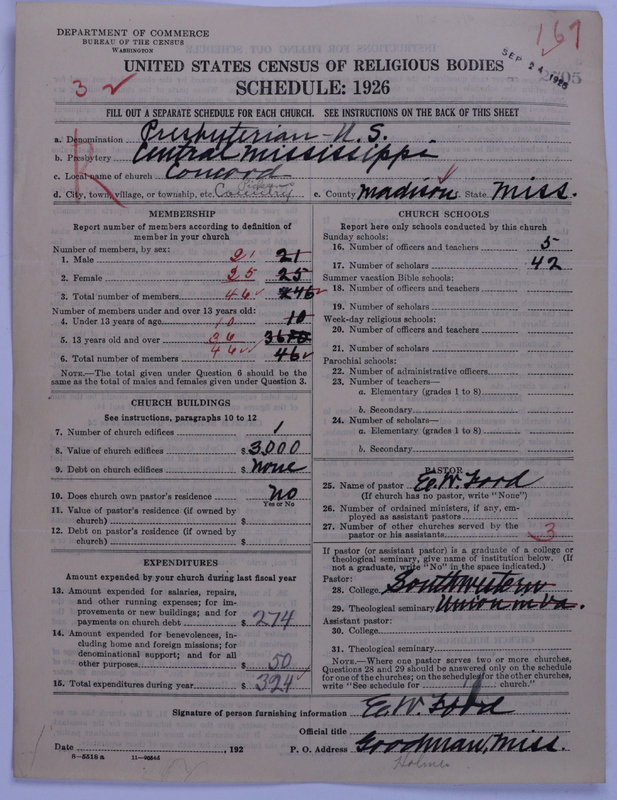 DEPARTMENT OF COMMERCE
BUREAU OF THE CENSUS
WASHINGTON
167
SEP 24 1928
UNITED STATES CENSUS OF RELIGIOUS BODIES
3
SCHEDULE: 1926
FILL OUT A SEPARATE SCHEDULE FOR EACH CHURCH. SEE INSTRUCTIONS ON THE BACK OF THIS SHEET
R
a. Denomination Presbyterian - U. S.
b. Presbytery Central Mississippi
c. Local name of church Concord
d. City, town, village, or township, etc. Country e. County Madison f. State Miss.
MEMBERSHIP
Report number of members according to definition of member in your church
Number of members, by sex:
1. Male 21 21
2. Female 25 25
3. Total number of members 46 46
Number of members under and over 13 years old:
4. Under 13 years of age 10 10
5. 13 years old and over 36 36
6. Total number of members 46 46
NOTE.—The total given under Question 6 should be the same as the total of males and females given under Question 3.
CHURCH BUILDINGS
See instructions, paragraphs 10 to 12
7. Number of church edifices 1
8. Value of church edifices $ 3,000
9. Debt on church edifices $ None
10. Does church own pastor's residence No
Yes or No
11. Value of pastor's residence (if owned by church) $
12. Debt on pastor's residence (if owned by church) $
EXPENDITURES
Amount expended by your church during last fiscal year
13. Amount expended for salaries, repairs, and other running expenses; for improvements or new buildings; and for payments on church debt $ 274
14. Amount expended for benevolences, including home and foreign missions; for denominational support; and for all other purposes $ 50
15. Total expenditures during year $ 324
CHURCH SCHOOLS
Report here only schools conducted by this church
Sunday schools:
16. Number of officers and teachers 5
17. Number of scholars 42
Summer vacation Bible schools:
18. Number of officers and teachers
19. Number of scholars
Week-day religious schools:
20. Number of officers and teachers
21. Number of scholars
Parochial schools:
22. Number of administrative officers
23. Number of teachers—
a. Elementary (grades 1 to 8)
b. Secondary
24. Number of scholars—
a. Elementary (grades 1 to 8)
b. Secondary
PASTOR
25. Name of pastor E. W. Ford
(If church has no pastor, write "None")
26. Number of ordained ministers, if any, employed as assistant pastors
27. Number of other churches served by the pastor or his assistants 3
If pastor (or assistant pastor) is a graduate of a college or theological seminary, give name of institution below. (If not a graduate, write "No" in the space indicated.)
Pastor:
28. College Southwestern
29. Theological seminary Union in Va.
Assistant pastor:
30. College
31. Theological seminary
NOTE.—Where one pastor serves two or more churches, Questions 28 and 29 should be answered only on the schedule for one of the churches; on the schedules for the other churches, write "See schedule for church."
Signature of person furnishing information E. W. Ford
Official title
Date , 192 P. O. Address Goodman, Miss.
8-5518 a 11-90545
Holmes